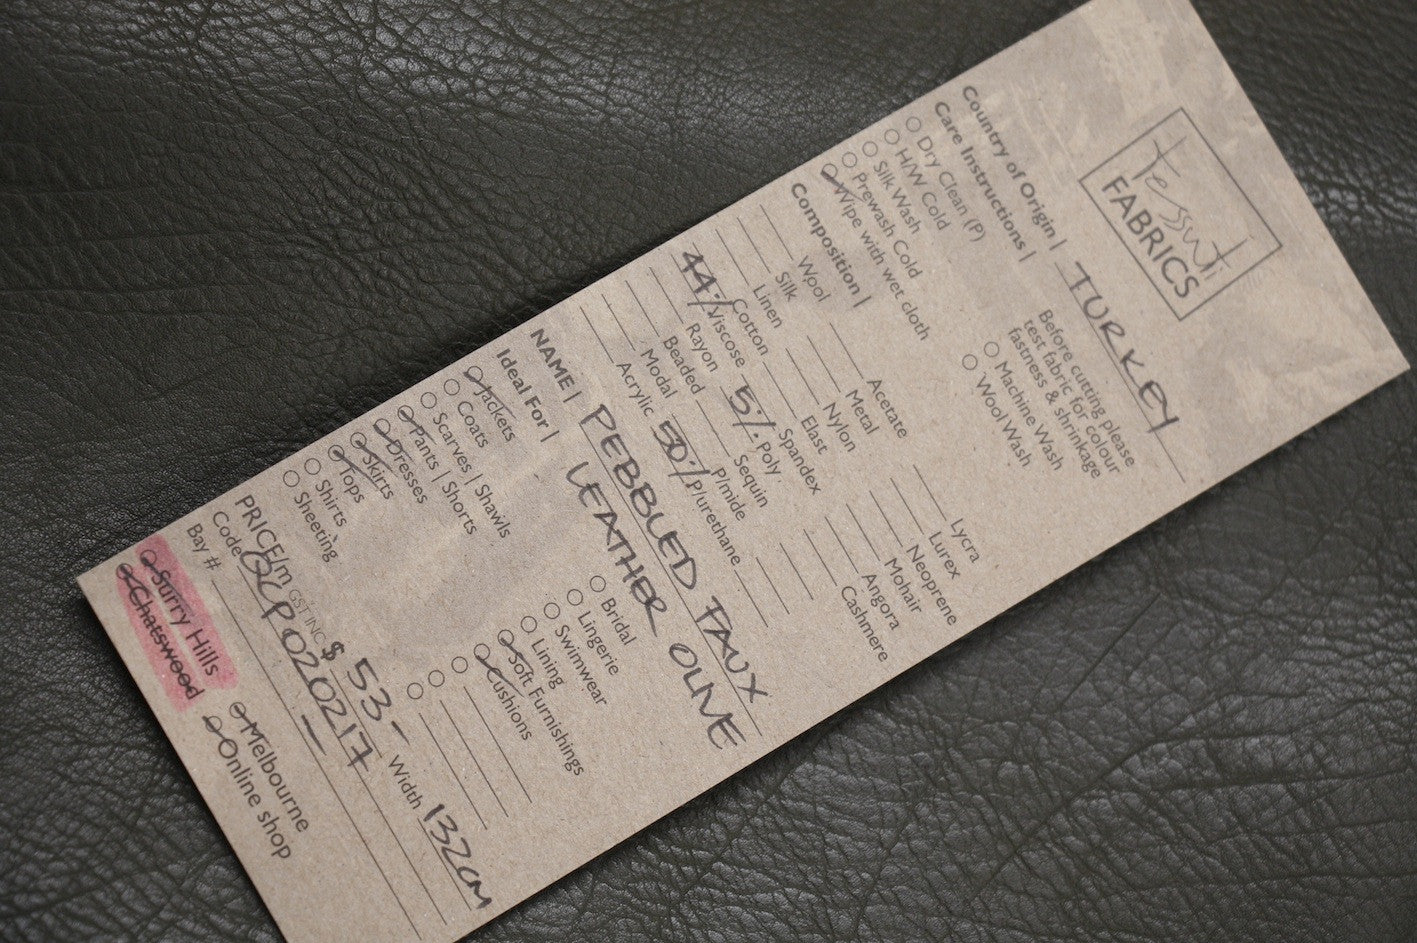 tessuti
FABRICS
Country of Origin | TURKEY
Care Instructions |
Before cutting please
test fabric for colour
fastness & shrinkage
Dry Clean (P)
H/W Cold
Silk Wash
Prewash Cold
Wipe with wet cloth
Machine Wash
Wool Wash
Composition |
Wool
Silk
Linen
Cotton
44% Viscose
Rayon
Beaded
Modal
Acrylic
Acetate
Metal
Nylon
Elast
Spandex
5% Poly
Sequin
P/mide
50% P/urethane
Lycra
Lurex
Neoprene
Mohair
Angora
Cashmere
NAME | PEBBLED FAUX
LEATHER OLIVE
Ideal For |
Jackets
Coats
Scarves | Shawls
Pants | Shorts
Dresses
Skirts
Tops
Shirts
Sheeting
Bridal
Lingerie
Swimwear
Lining
Soft Furnishings
Cushions
PRICE/m GST INC $ 53- Width 132cm
Code QLP020217
Bay # –
Surry Hills
Chatswood
Melbourne
Online shop